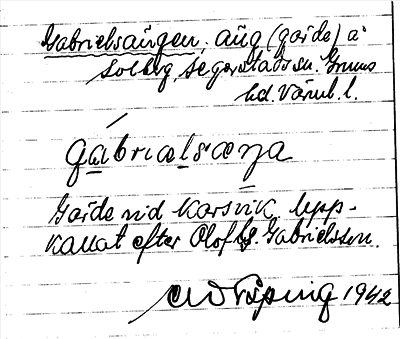 Gabrielsängen, äng (gärde) å
Solberg, Segerstads sn. Grums
hd. Värml. l.
gábrialsæŋa
Gärde vid Karsvik. Upp-
kallat efter Olof Gabrielsson.
1942